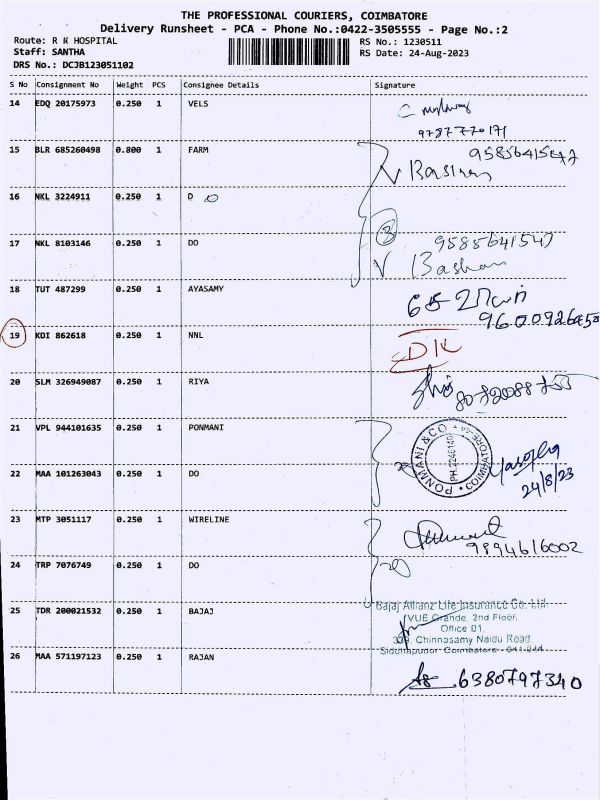 THE PROFESSIONAL COURIERS, COIMBATORE
Delivery Runsheet - PCA - Phone No.:0422-3505555 - Page No.:2
Route: R K HOSPITAL
Staff: SANTHA
DRS No.: DCJB123051102
RS No.: 1230511
RS Date: 24-Aug-2023
S No Consignment No Weight PCS Consignee Details Signature
14 EDQ 20175973 0.250 1 VELS
9787770171
15 BLR 685260498 0.800 1 FARM 9585641547
Baskaran
16 NKL 3224911 0.250 1 D O
3
17 NKL 8103146 0.250 1 DO 9585641547
V Baskaran
18 TUT 487299 0.250 1 AYASAMY
19 KDI 862618 0.250 1 NNL
20 SLM 326949087 0.250 1 RIYA
21 VPL 944101635 0.250 1 PONMANI
PONMANI & CO COIMBATORE
24/8/23
22 MAA 101263043 0.250 1 DO
23 MTP 3051117 0.250 1 WIRELINE
9894616002
24 TRP 7076749 0.250 1 DO
25 TDR 200021532 0.250 1 BAJAJ
Bajaj Allianz Life Insurance Co. Ltd
VUE Grande, 2nd Floor,
Office 01,
339, Chinnasamy Naidu Road,
26 MAA 571197123 0.250 1 RAJAN
6380797340